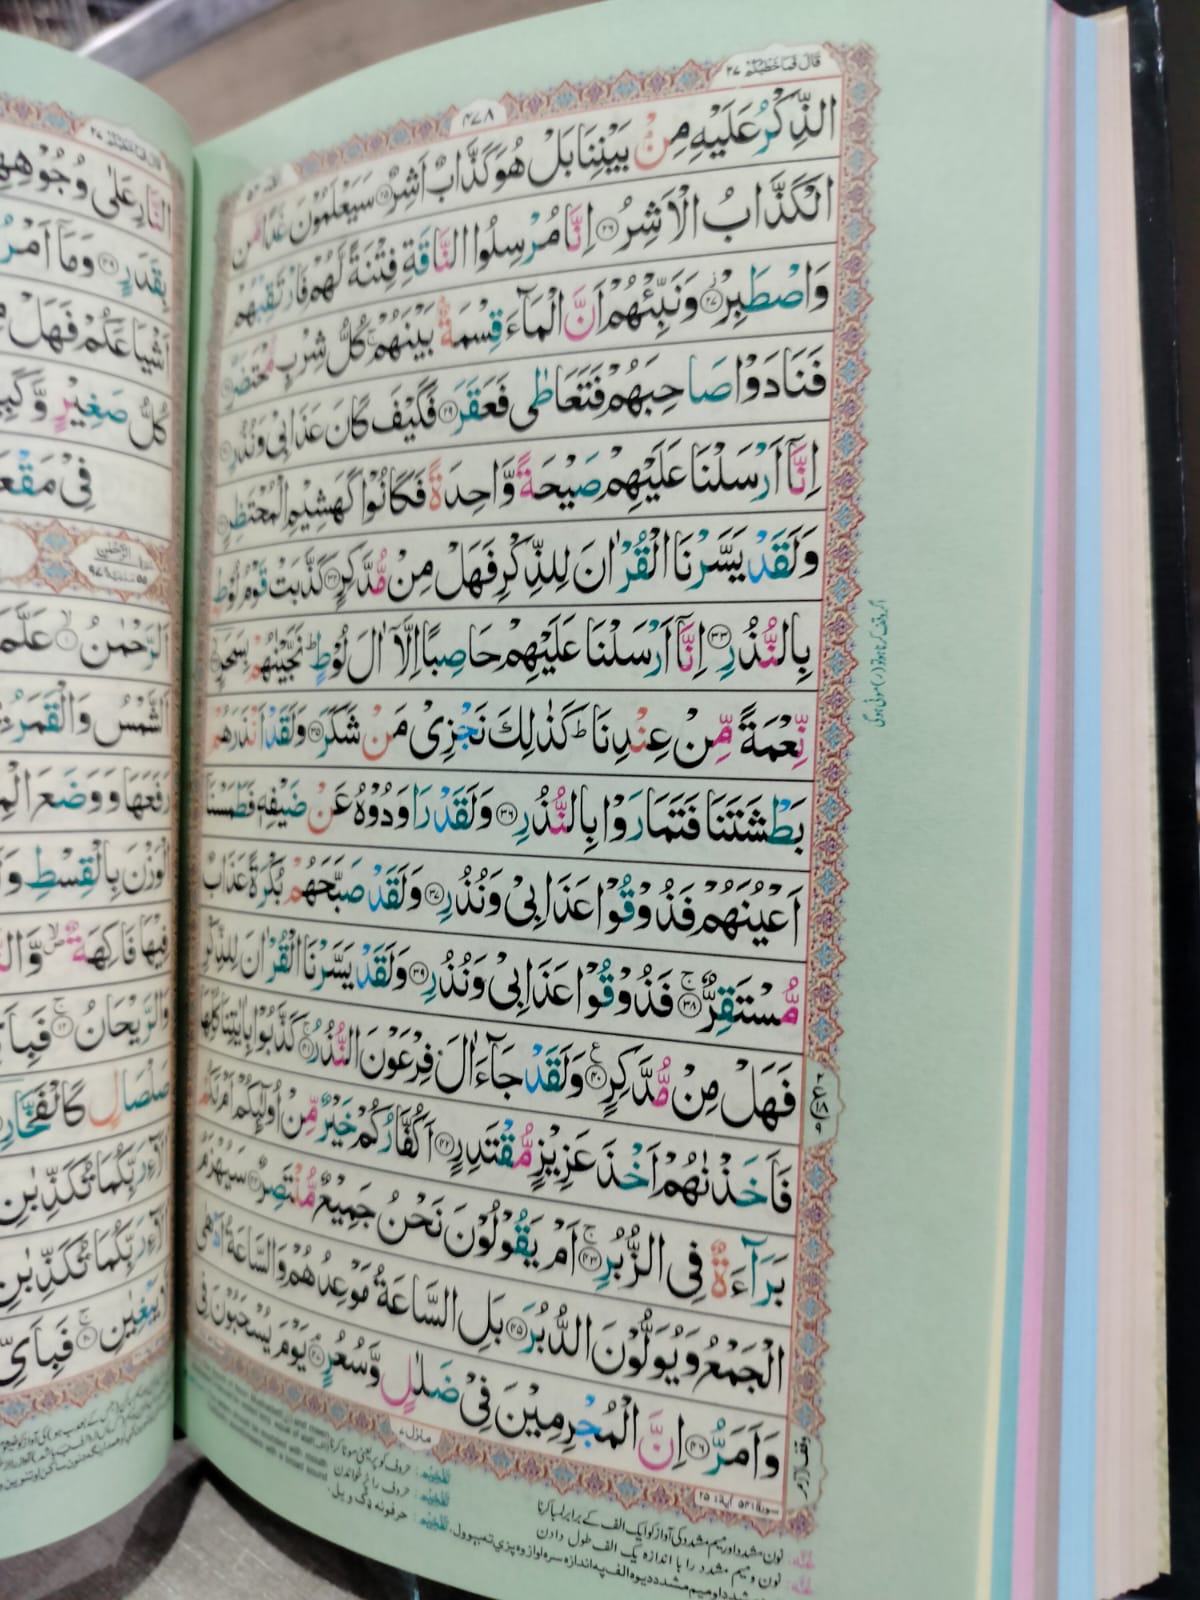 قَالَ فَمَا خَطْبُكُمْ ٢٧
٤٧٨
الذِّكْرُ عَلَيْهِ مِنْۢ بَيْنِنَا بَلْ هُوَ كَذَّابٌ اَشِرٌ ۝٢٥ سَيَعْلَمُوْنَ غَدًا مَّنِ
الْكَذَّابُ الْاَشِرُ ۝٢٦ اِنَّا مُرْسِلُوا النَّاقَةِ فِتْنَةً لَّهُمْ فَارْتَقِبْهُمْ
وَاصْطَبِرْ ۝٢٧ وَنَبِّئْهُمْ اَنَّ الْمَآءَ قِسْمَةٌۢ بَيْنَهُمْ ۚ كُلُّ شِرْبٍ مُّحْتَضَرٌ
فَنَادَوْا صَاحِبَهُمْ فَتَعَاطٰى فَعَقَرَ ۝٢٩ فَكَيْفَ كَانَ عَذَابِىْ وَنُذُرِ
اِنَّآ اَرْسَلْنَا عَلَيْهِمْ صَيْحَةً وَّاحِدَةً فَكَانُوْا كَهَشِيْمِ الْمُحْتَظِرِ
وَلَقَدْ يَسَّرْنَا الْقُرْاٰنَ لِلذِّكْرِ فَهَلْ مِنْ مُّدَّكِرٍ ۝٣٢ كَذَّبَتْ قَوْمُ لُوْطٍۭ
بِالنُّذُرِ ۝٣٣ اِنَّآ اَرْسَلْنَا عَلَيْهِمْ حَاصِبًا اِلَّآ اٰلَ لُوْطٍ ؕ نَجَّيْنٰهُمْ بِسَحَرٍ
نِّعْمَةً مِّنْ عِنْدِنَا ؕ كَذٰلِكَ نَجْزِىْ مَنْ شَكَرَ ۝٣٥ وَلَقَدْ اَنْذَرَهُمْ
بَطْشَتَنَا فَتَمَارَوْا بِالنُّذُرِ ۝٣٦ وَلَقَدْ رَاوَدُوْهُ عَنْ ضَيْفِهٖ فَطَمَسْنَآ
اَعْيُنَهُمْ فَذُوْقُوْا عَذَابِىْ وَنُذُرِ ۝٣٧ وَلَقَدْ صَبَّحَهُمْ بُكْرَةً عَذَابٌ
مُّسْتَقِرٌّ ۝٣٨ۚ فَذُوْقُوْا عَذَابِىْ وَنُذُرِ ۝٣٩ وَلَقَدْ يَسَّرْنَا الْقُرْاٰنَ لِلذِّكْرِ
فَهَلْ مِنْ مُّدَّكِرٍ ۝٤٠ وَلَقَدْ جَآءَ اٰلَ فِرْعَوْنَ النُّذُرُ ۝٤١ۚ كَذَّبُوْا بِاٰيٰتِنَا كُلِّهَا
فَاَخَذْنٰهُمْ اَخْذَ عَزِيْزٍ مُّقْتَدِرٍ ۝٤٢ اَكُفَّارُكُمْ خَيْرٌ مِّنْ اُولٰٓئِكُمْ اَمْ لَكُمْ
بَرَآءَةٌ فِى الزُّبُرِ ۝٤٣ۚ اَمْ يَقُوْلُوْنَ نَحْنُ جَمِيْعٌ مُّنْتَصِرٌ ۝٤٤ سَيُهْزَمُ
الْجَمْعُ وَيُوَلُّوْنَ الدُّبُرَ ۝٤٥ بَلِ السَّاعَةُ مَوْعِدُهُمْ وَالسَّاعَةُ اَدْهٰى
وَاَمَرُّ ۝٤٦ اِنَّ الْمُجْرِمِيْنَ فِىْ ضَلٰلٍ وَّسُعُرٍ ۝٤٧ۘ يَوْمَ يُسْحَبُوْنَ فِى
وقف لازم
منزل ٧
سورة: ٥٤ آية: ٢٥
غنّه: نون مشدد اور میم مشدد کی آواز کو ایک الف کے برابر لمبا کرنا
غنّه: نون و میم مشدد را با اندازه یک الف طول دادن
تفخیم: حروف کو پُر یعنی موٹا کرنا
تفخیم: حروف را پُر خواندن
النَّارِ عَلٰى وُجُوْهِهِمْ
بِقَدَرٍ ۝٤٩ وَمَآ اَمْرُ
اَشْيَاعَكُمْ فَهَلْ
كُلُّ صَغِيْرٍ وَّكَبِ
فِىْ مَقْعَ
الرَّحْمٰن
اَلرَّحْمٰنُ ۝١ عَلَّمَ
اَلشَّمْسُ وَالْقَمَرُ
رَفَعَهَا وَوَضَعَ الْمِ
الْوَزْنَ بِالْقِسْطِ وَ
فِيْهَا فَاكِهَةٌ وَّالنَّ
وَالرَّيْحَانُ ۝١٢ۚ فَبِاَ
صَلْصَالٍ كَالْفَخَّارِ
اٰلَآءِ رَبِّكُمَا تُكَذِّبٰنِ
اٰلَآءِ رَبِّكُمَا تُكَذِّبٰنِ
يَبْغِيٰنِ ۝٢٠ۚ فَبِاَىِّ